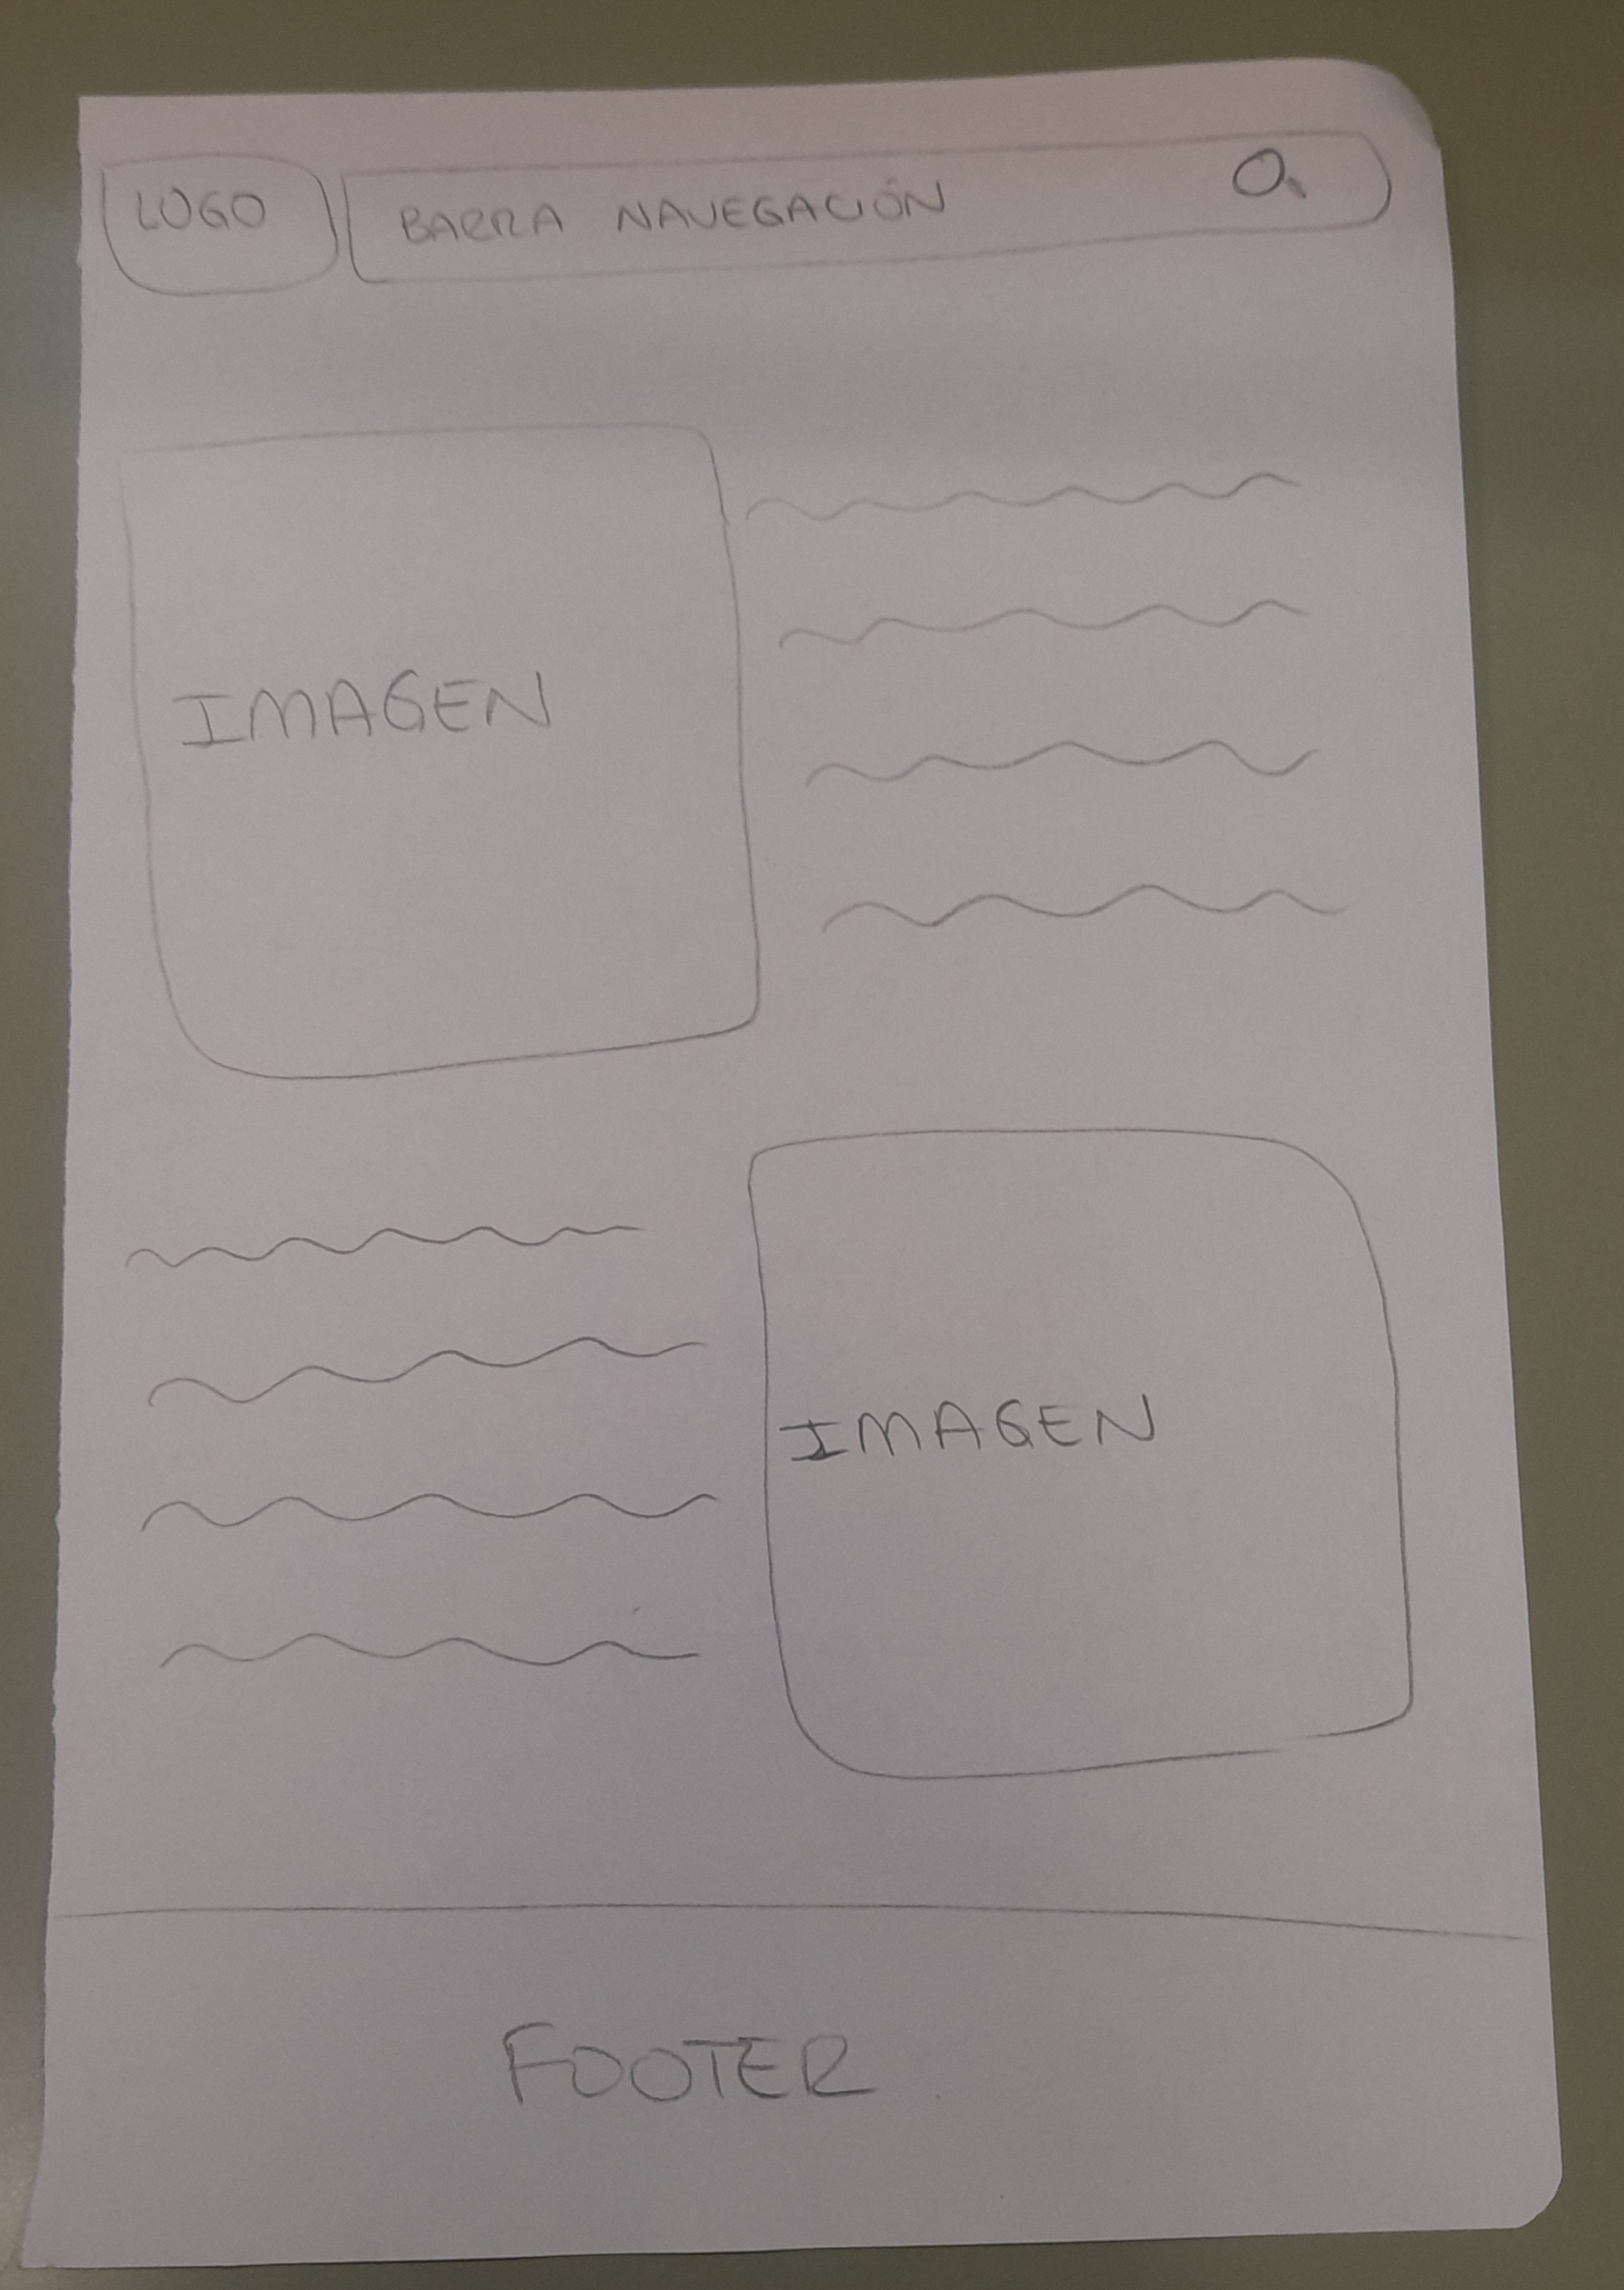 LOGO
BARRA NAVEGACIÓN
IMAGEN
IMAGEN
FOOTER